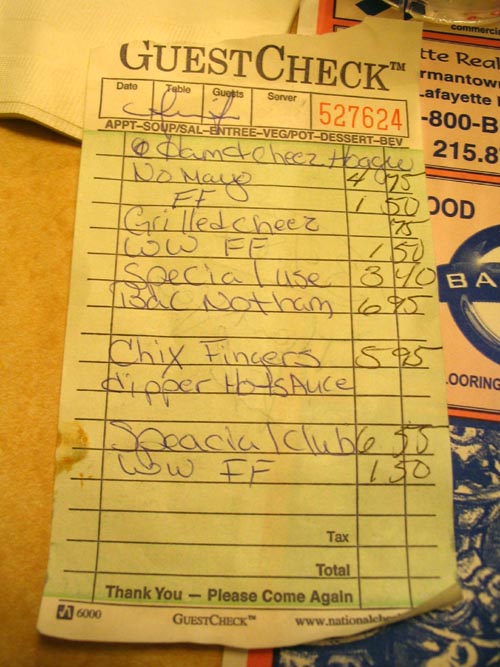 GUESTCHECK™
Date Table Guests Server
527624
APPT-SOUP/SAL-ENTREE-VEG/POT-DESSERT-BEV
Ham+Cheez Hoagie
No Mayo 4 75
FF 1 50
Grilled cheez 75
WW FF 1 50
Special use 3 40
Bac Not ham 6 95
Chix Fingers 5 95
dipper Hotsauce
Speacial club 6 55
WW FF 1 50
Tax
Total
Thank You — Please Come Again
6000 GUESTCHECK™ www.nationalche
commerci
tte Real
rmantow
Lafayette
-800-B
215.8
OOD
BA
OORING